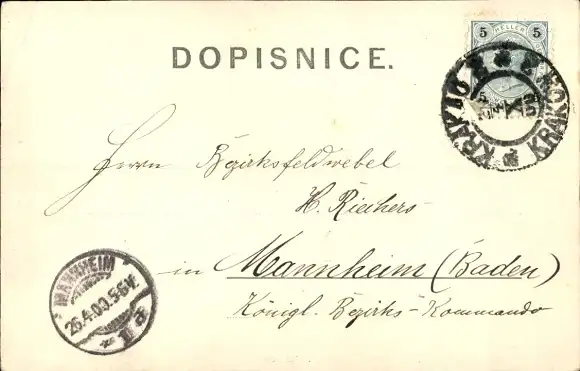 DOPISNICE.
5 HELLER 5
KRAKÓW KRAKAU
Herrn Bezirksfeldwebel
H. Riechers
in Mannheim (Baden)
Königl. Bezirks-Kommando
MANNHEIM
26.4.00.5-6V.
* 1 a